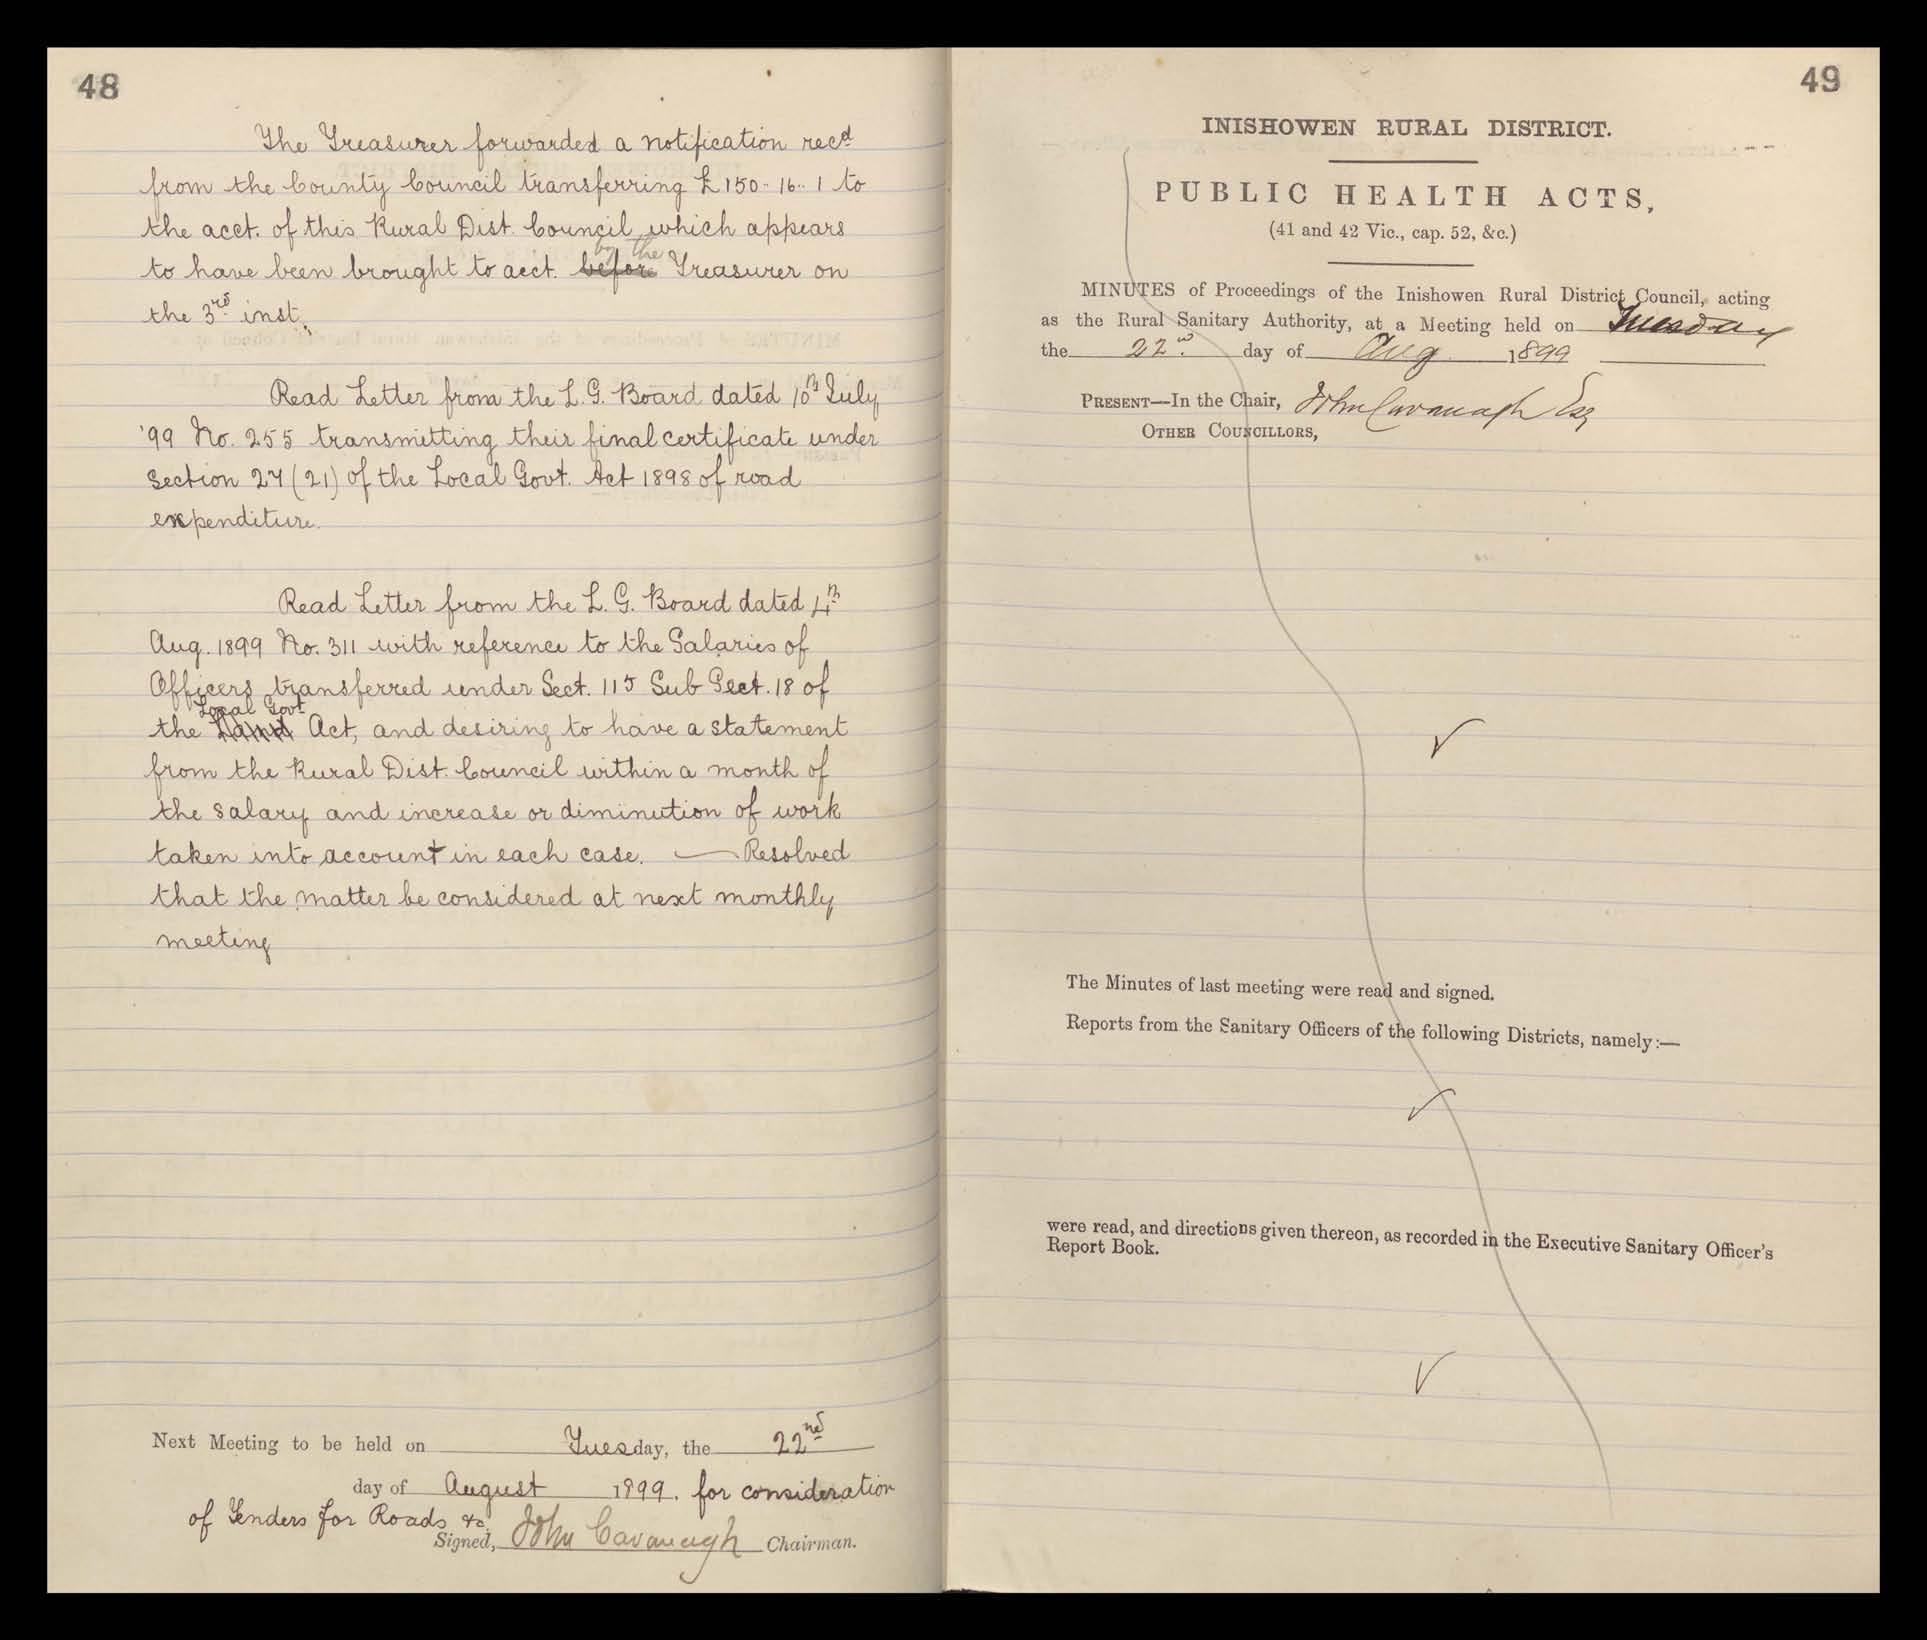 48
The Treasurer forwarded a notification recd
from the County Council transferring £150-16-1 to
the acct. of this Rural Dist. Council which appears
to have been brought to acct. before by the Treasurer on
the 3rd inst.
Read Letter from the L.G. Board dated 10th July
'99 No. 255 transmitting their final certificate under
Section 27(21) of the Local Govt. Act 1898 of road
expenditure.
Read Letter from the L.G. Board dated 4th
Aug. 1899 No. 311 with reference to the Salaries of
Officers transferred under Sect. 115 Sub Sect. 18 of
the Local Govt Act, and desiring to have a statement
from the Rural Dist. Council within a month of
the salary and increase or diminution of work
taken into account in each case. — Resolved
that the matter be considered at next monthly
meeting
Next Meeting to be held on Tuesday, the 22nd
day of August 1899. for consideration
of Tenders for Roads &c.
Signed, John Cavanagh Chairman.
49
INISHOWEN RURAL DISTRICT.
PUBLIC HEALTH ACTS,
(41 and 42 Vic., cap. 52, &c.)
MINUTES of Proceedings of the Inishowen Rural District Council, acting
as the Rural Sanitary Authority, at a Meeting held on Tuesday
the 22nd day of Aug 1899
PRESENT—In the Chair, John Cavanagh Esq
OTHER COUNCILLORS,
The Minutes of last meeting were read and signed.
Reports from the Sanitary Officers of the following Districts, namely:—
were read, and directions given thereon, as recorded in the Executive Sanitary Officer's
Report Book.